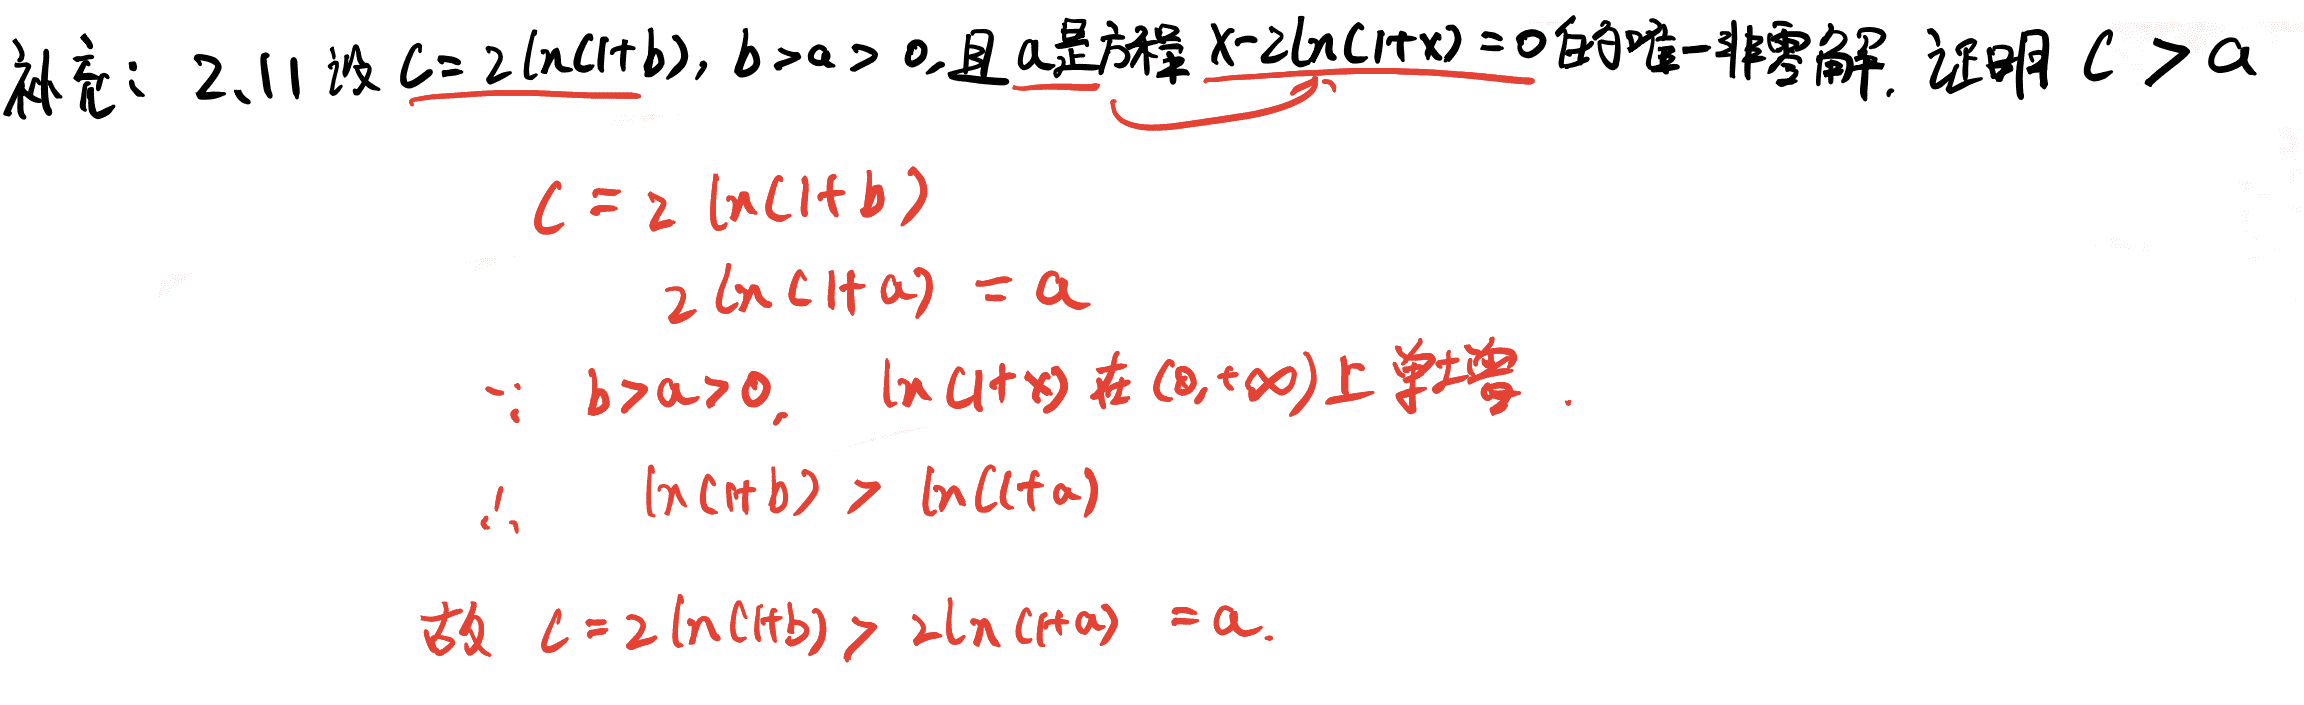 补充: 2.11 设 C=2ln(1+b), b>a>0, 且 a是方程 x-2ln(1+x)=0 的唯一非零解. 证明 C>a
C=2ln(1+b)
2ln(1+a)=a
∵ b>a>0, ln(1+x) 在 (0,+∞)上单增.
∴ ln(1+b) > ln(1+a)
故 C=2ln(1+b) > 2ln(1+a) =a.